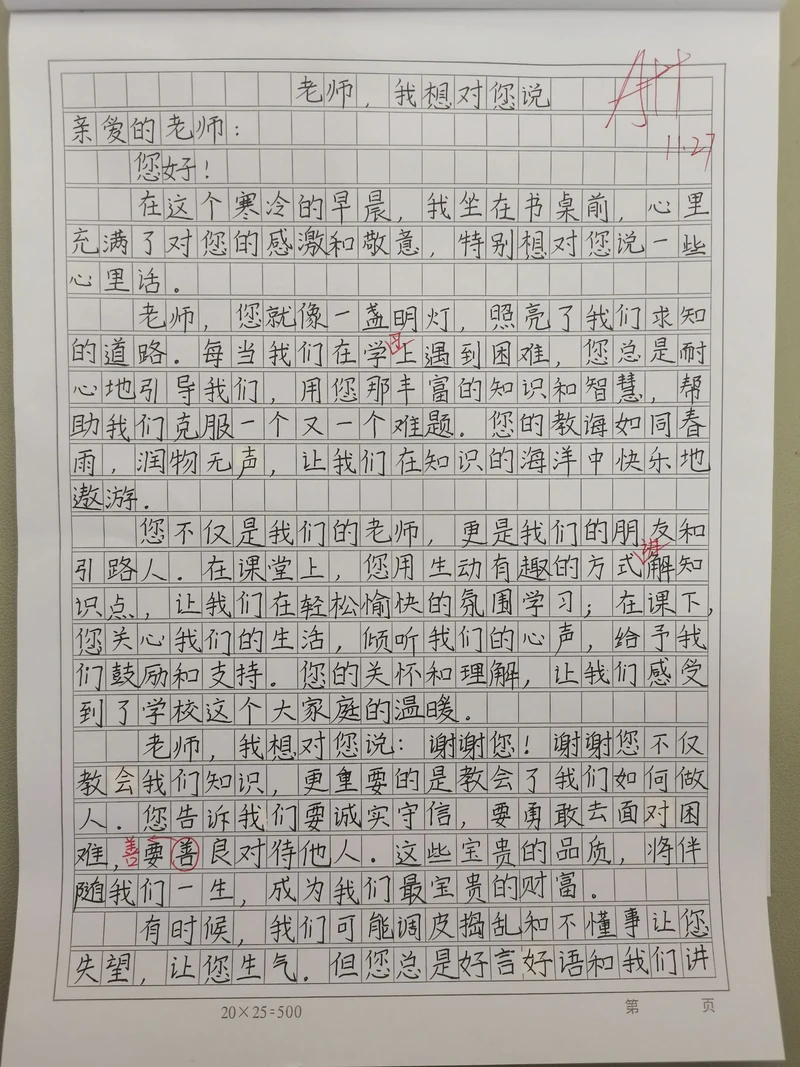 老师，我想对您说
A++
11.27
亲爱的老师：
您好！
在这个寒冷的早晨，我坐在书桌前，心里
充满了对您的感激和敬意，特别想对您说一些
心里话。
老师，您就像一盏明灯，照亮了我们求知
的道路．每当我们在学上遇到困难，您总是耐
心地引导我们，用您那丰富的知识和智慧，帮
助我们克服一个又一个难题．您的教海如同春
雨，润物无声，让我们在知识的海洋中快乐地
遨游．
您不仅是我们的老师，更是我们的朋友和
讲
引路人．在课堂上，您用生动有趣的方式解知
识点，让我们在轻松愉快的氛围学习；在课下，
您关心我们的生活，倾听我们的心声，给予我
们鼓励和支持．您的关怀和理解，让我们感受
到了学校这个大家庭的温暖。
老师，我想对您说：谢谢您！谢谢您不仅
教会我们知识，更重要的是教会了我们如何做
人．您告诉我们要诚实守信，要勇敢去面对困
善
难，要善良对待他人．这些宝贵的品质，将伴
随我们一生，成为我们最宝贵的财富。
有时候，我们可能调皮捣乱和不懂事让您
失望，让您生气．但您总是好言好语和我们讲
20×25=500
第 页